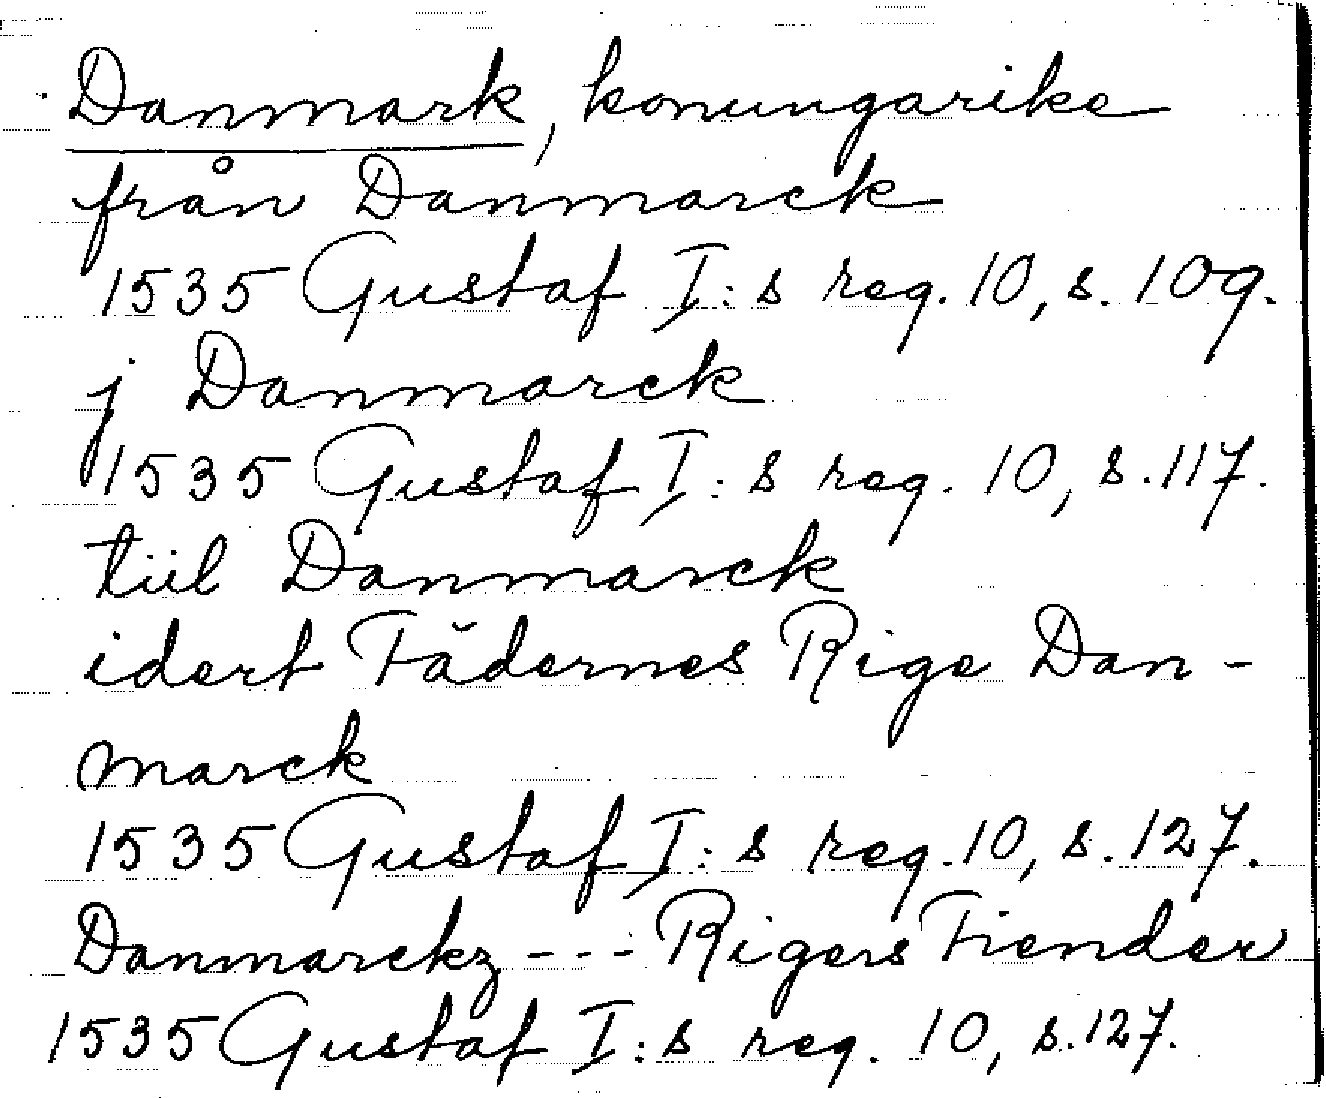 Danmark, konungarike
från Danmarck
1535 Gustaf I:s reg. 10, s. 109.
j Danmarck
1535 Gustaf I:s reg. 10, s. 117.
tiil Danmarck
idert Fădernes Rige Dan-
marck
1535 Gustaf I:s reg. 10, s. 127.
Danmarckz --- Rigers Fiender
1535 Gustaf I:s reg. 10, s. 127.